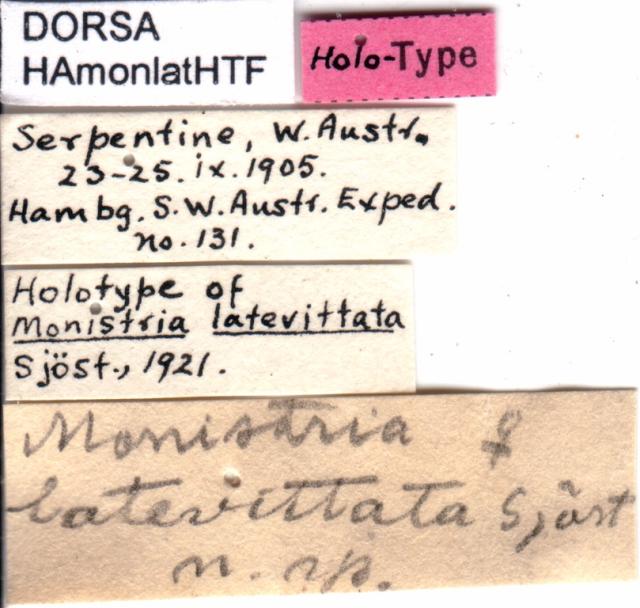 DORSA
HAmonlatHTF
Holo-Type
Serpentine, W. Austr.
23-25. ix. 1905.
Hambg. S.W. Austr. Exped.
no. 131.
Holotype of
Monistria latevittata
Sjöst., 1921.
Monistria ♀
latevittata Sjöst
n. sp.